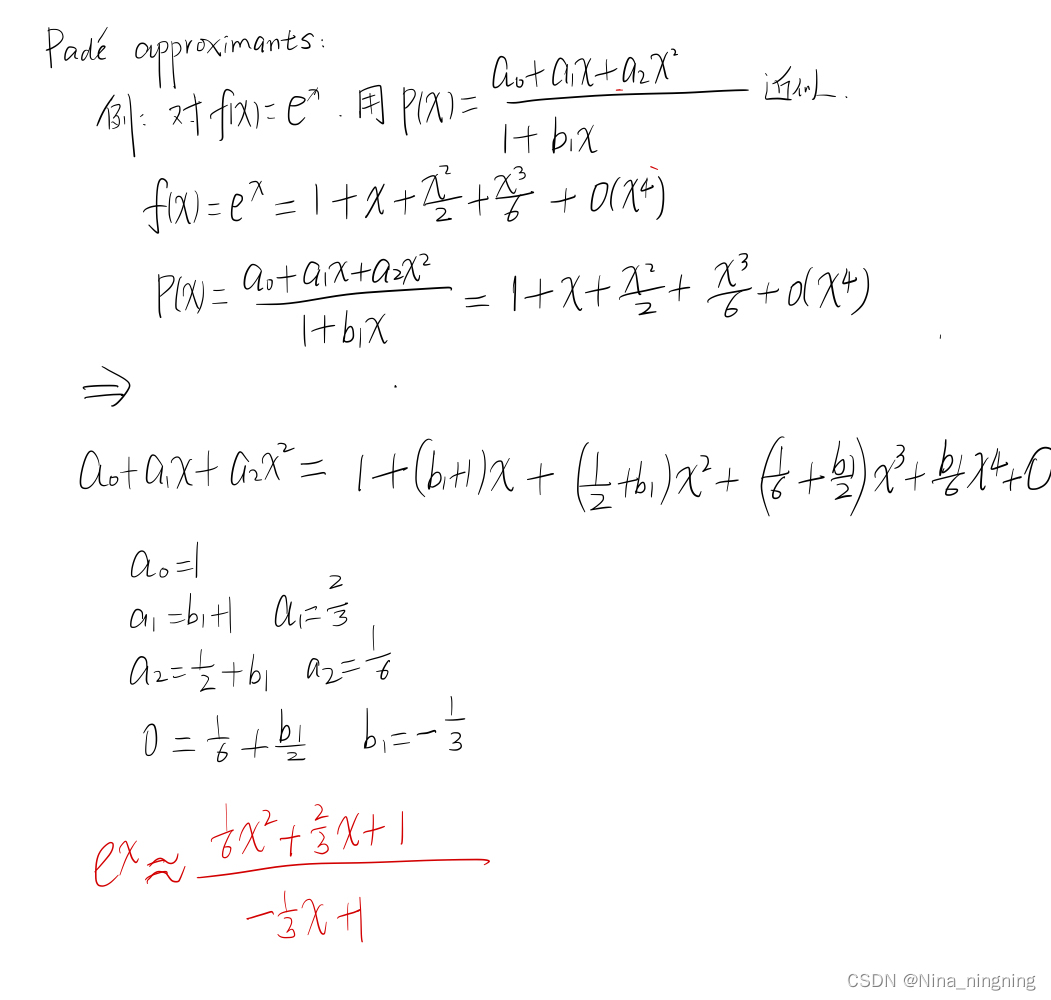 Padé approximants:
例: 对 f(x)=eˣ. 用 P(x)= (a₀+a₁x+a₂x²)/(1+b₁x) 近似.
f(x)=eˣ=1+x+x²/2+x³/6+O(x⁴)
P(x)=(a₀+a₁x+a₂x²)/(1+b₁x)=1+x+x²/2+x³/6+O(x⁴)
⇒
a₀+a₁x+a₂x²=1+(b₁+1)x+(1/2+b₁)x²+(1/6+b₁/2)x³+b₁/6x⁴+O
a₀=1
a₁=b₁+1 a₁=2/3
a₂=1/2+b₁ a₂=1/6
0=1/6+b₁/2 b₁=-1/3
eˣ≈(1/6x²+2/3x+1)/(-1/3x+1)
CSDN @Nina_ningning